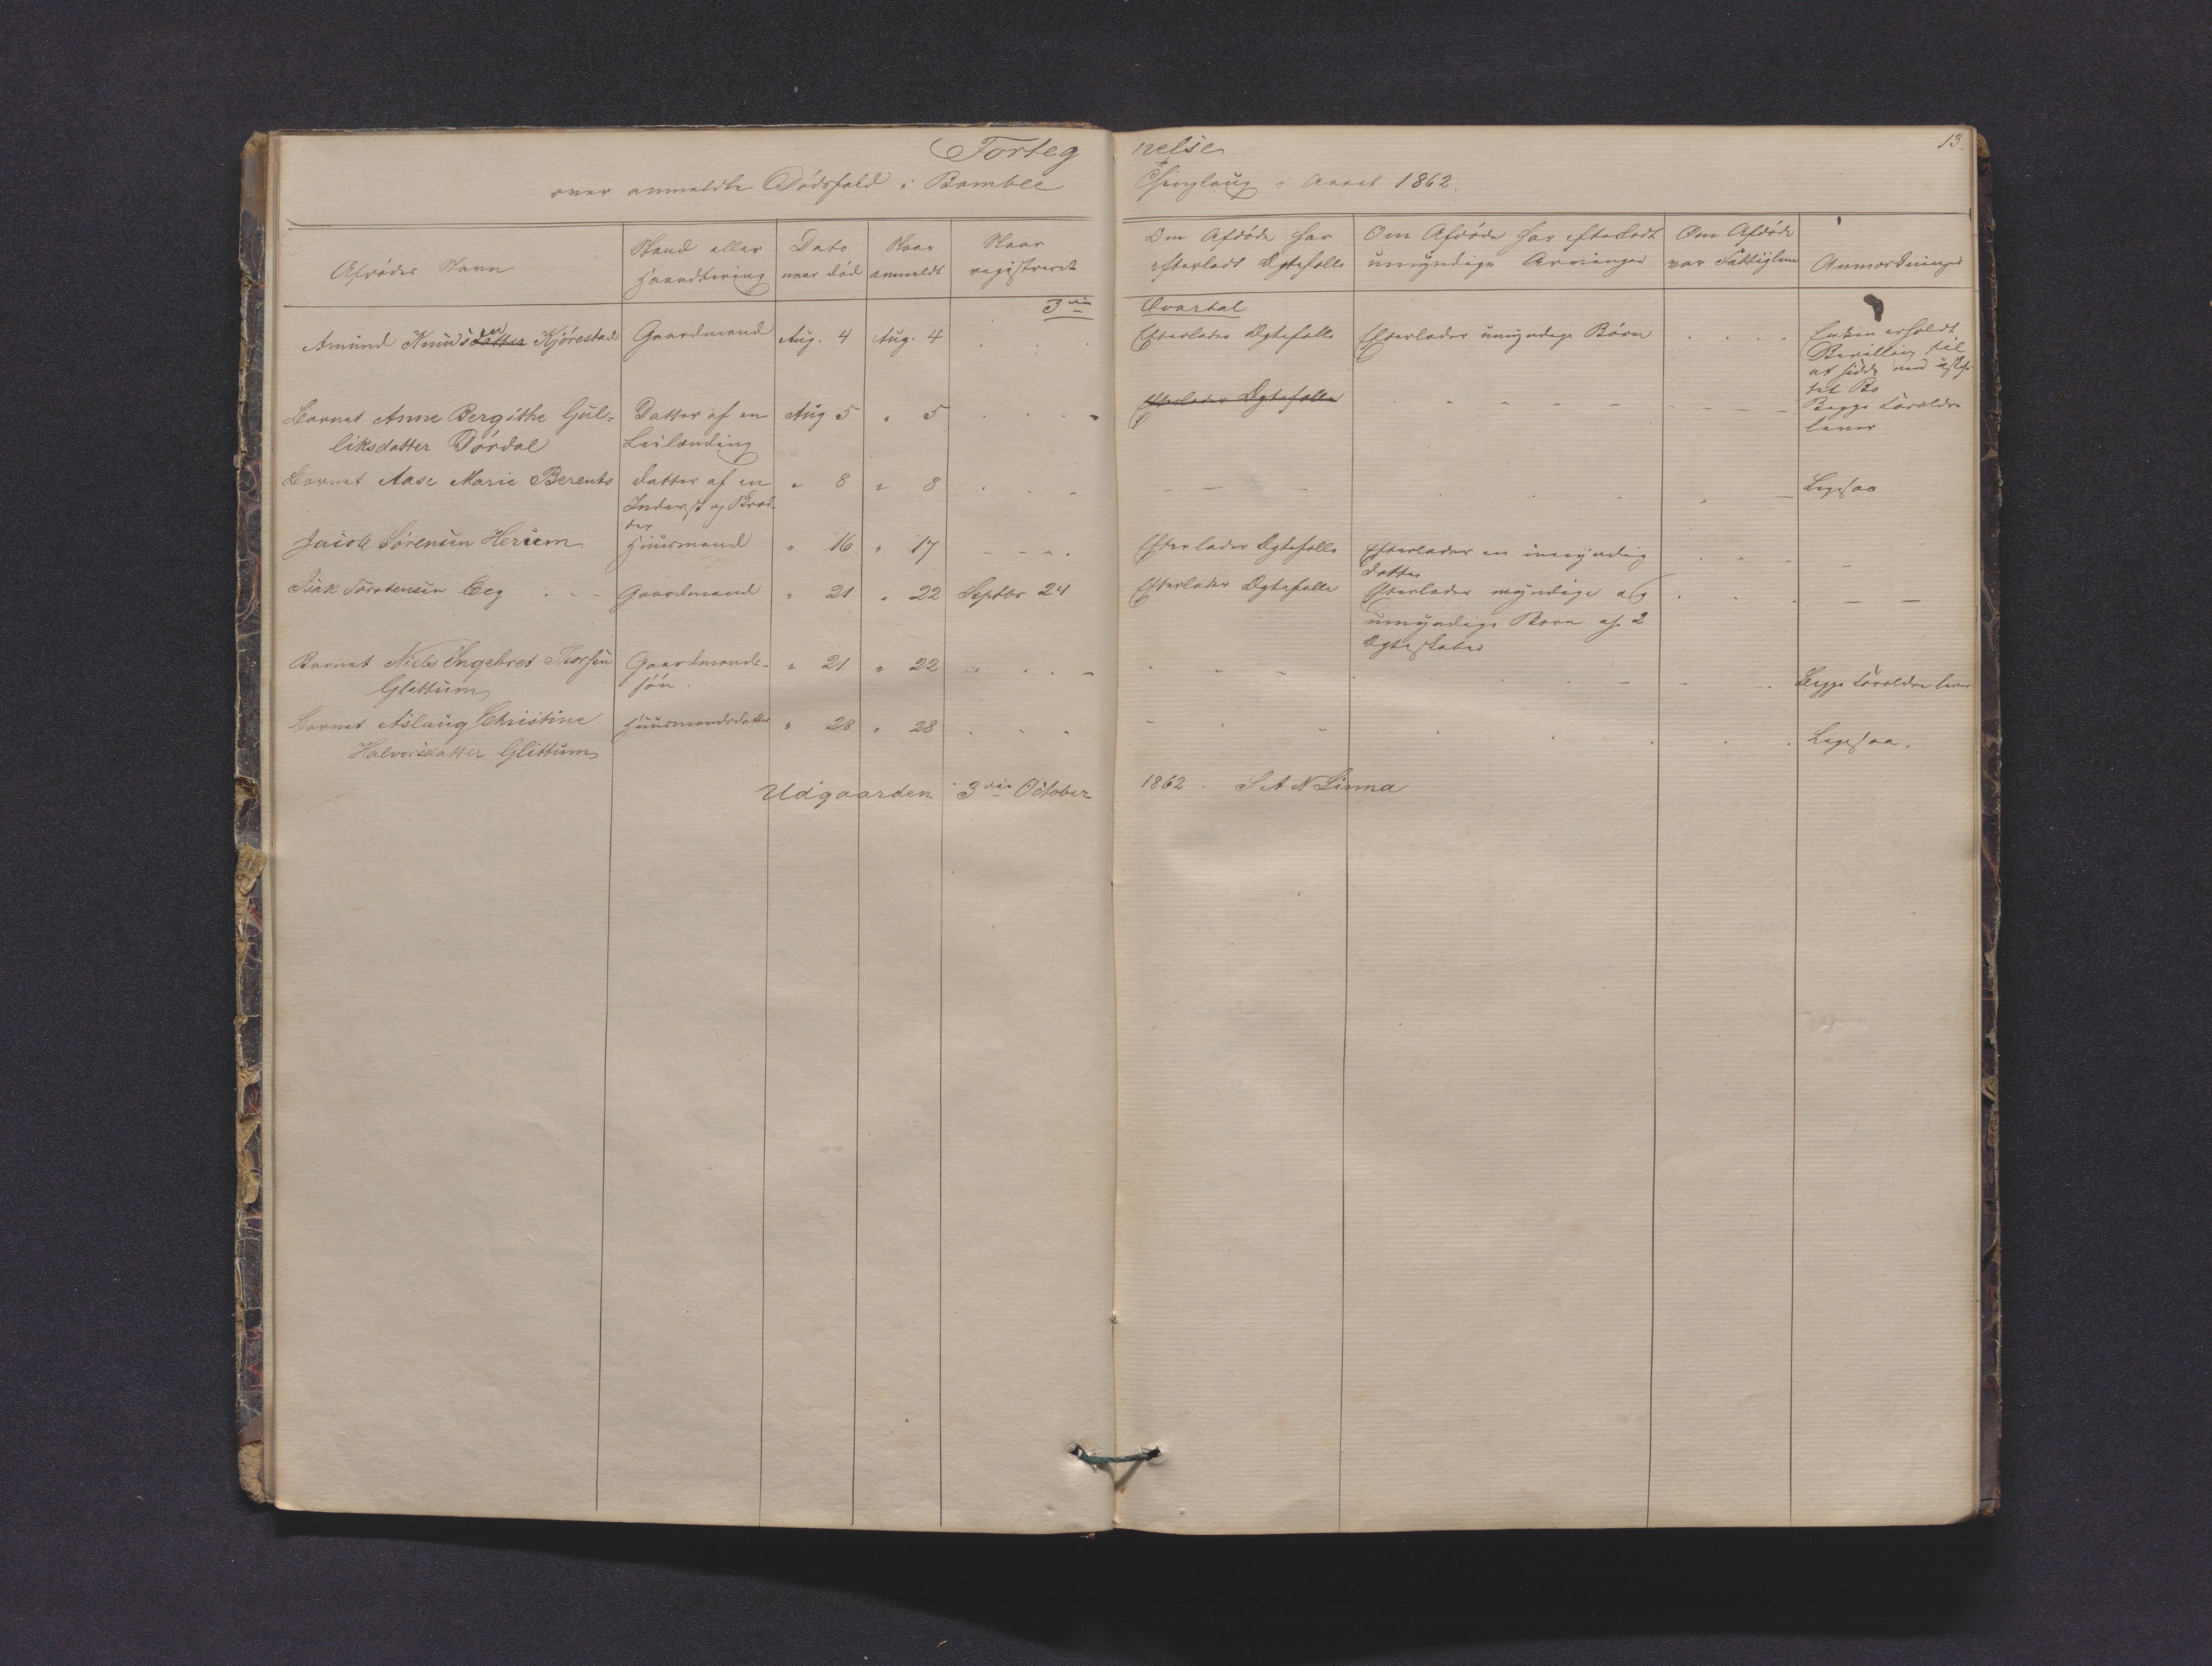 13.
Forteg nelse
over anmeldte Dödsfald i Bamble Thinglaug i Aaret 1862.
Afdödes Navn
Stand eller Haandtering
Dato naar död
Naar anmeldt
Naar registreret
Om Afdöde har efterladt Ægtefælle
Om Afdöde har efterladt umyndige Arvinger
Om Afdöde var Fattiglem
Anmærkninger
3die Qvartal
Amund Knudsdatter en Kjörestad Gaardmand Aug. 4 Aug. 4 Efterlader Ægtefælle Efterlader umyndige Börn Enken erholdt
Bevilling til
at sidde med uskif-
tet Bo
Barnet Anne Bergithe Gul- Datter af en Aug 5 " 5 Efterlader Ægtefælle Begge Forældre
liksdatter Dördal Leilænding lever
Barnet Aase Marie Berents Datter af en " 8 " 8 Ligesaa
Inderst og
Jacob Sörensen Herum Huusmand " 16 " 17 Efterlader Ægtefælle Efterlader en umyndig
Datter
Isak Torstensen Eeg Gaardmand " 21 " 22 Septbr 24 Efterlader Ægtefælle Efterlader myndige og
umyndige Börn af 2
Ægteskaber
Barnet Niels Ingebret Thorsen Gaardmands- " 21 " 22 Begge Forældre lever
Glittum sön.
Barnet Aslaug Christine Huusmandsdatter " 28 " 28 Ligesaa.
Halvorsdatter Glittum
Udgaarden 3die October 1862. S A N Linna